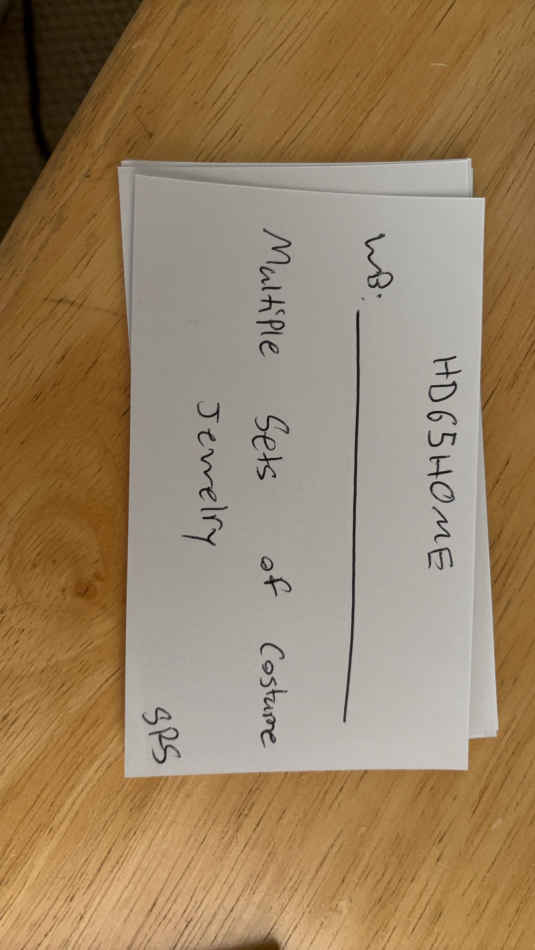 HD65HOME
WB:
Multiple Sets of Costume
Jewelry
SPS